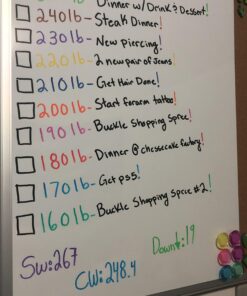 Dinner w/Drink & Dessert!
240lb- Steak Dinner!
230lb- New piercing!
220lb- 2 new pair of Jeans!
210lb- Get Hair Done!
200lb- Start forarm tattoo!
190lb- Buckle Shopping Spree!
180lb- Dinner @ cheesecake factory!
170lb- Get ps5!
160lb- Buckle Shopping Spree #2!
Down: 19
SW: 267
CW: 248.4